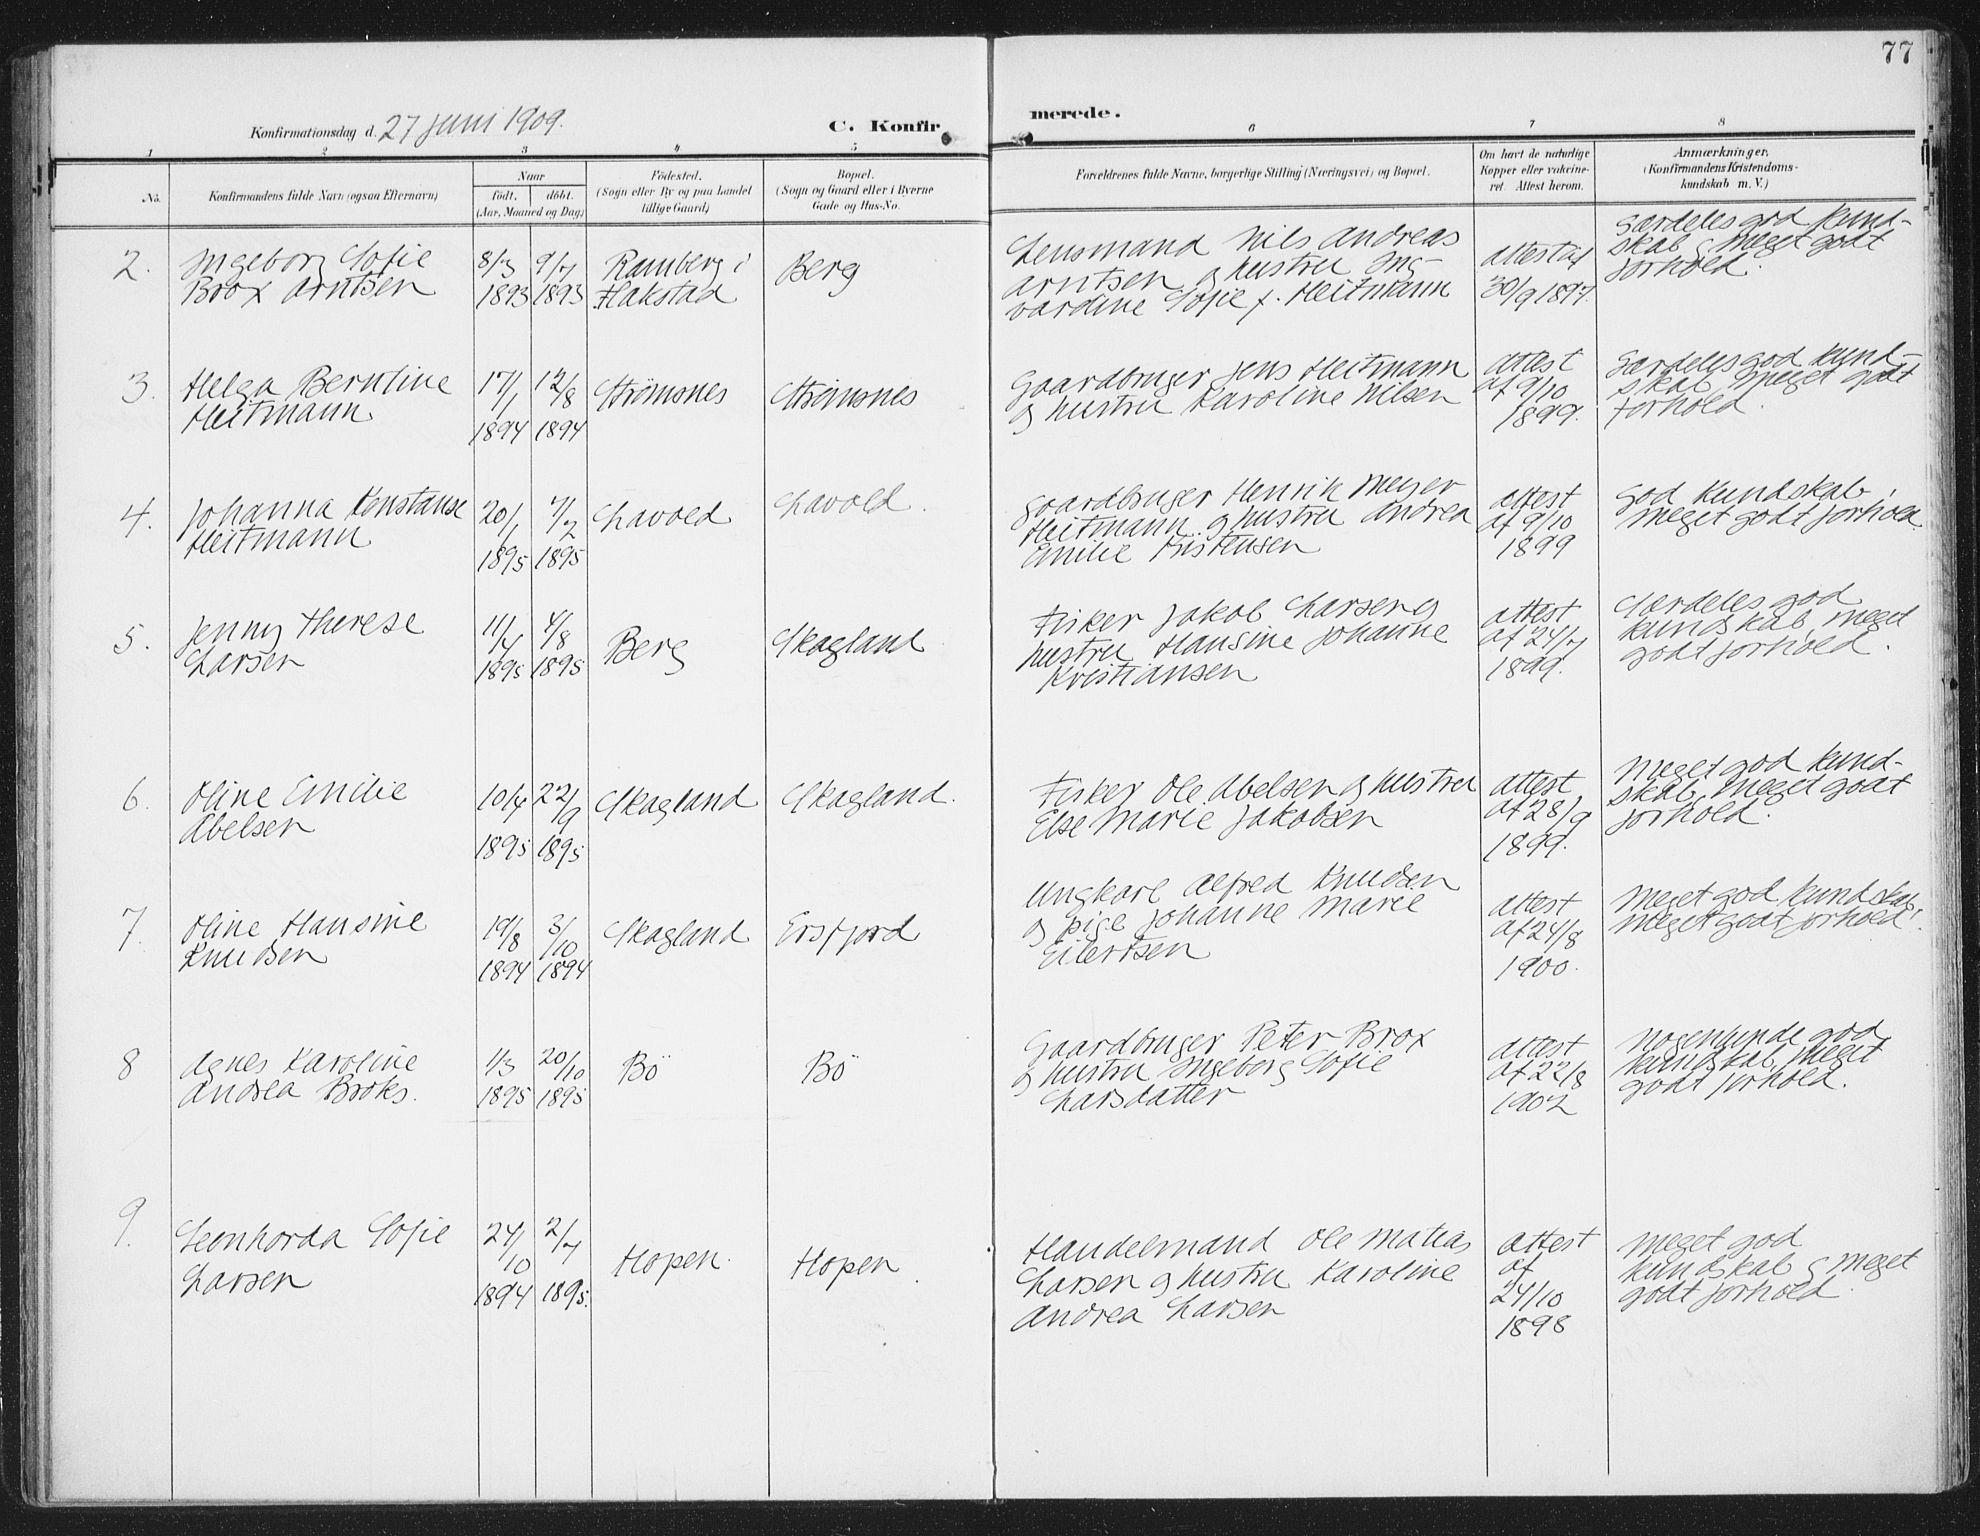 77
Konfirmationsdag d. 27 juni 1909.
C. Konfir
merede.
1 2 3 4 5 6 7 8
No.
Konfirmandens fulde Navn (ogsaa Efternavn)
Naar
födt. döbt.
(Aar, Maaned og Dag)
Födested.
(Sogn eller By og paa Landet
tillige Gaard)
Bopæl.
(Sogn og Gaard eller i Byerne
Gade og Hus-No.
Forældrenes fulde Navne, borgerlige Stilling (Næringsvei) og Bopæl.
Om havt de naturlige
Kopper eller vakcine-
ret. Attest herom.
Anmærkninger.
(Konfirmandens Kristendoms-
kundskab m. V.)
2.
Ingeborg Sofie
Brox Arntsen
8/3
1893
9/7
1893
Ramberg i
Hakstad
Berg
Lensmand Nils Andreas
Arntsen og hustru Ing-
vardine Sofie f. Heitmann
attest af
30/9 1897.
Særdeles god kund-
skab, meget godt
forhold.
3.
Helga Berntine
Heitmann
17/1
1894
12/8
1894
Strömsnes
Strömsnes
Gaardbruger Jens Heitmann
og hustru Karoline Nilsen
attest
af 9/10
1899.
Særdeles god kund-
skab, meget godt
forhold.
4.
Johanna Konstanse
Heitmann
20/1
1895
7/2
1895
Lavold
Lavold.
Gaardbruger Henrik Meyer
Heitmann og hustru Andrea
Emilie Kristensen
attest
af 9/10
1899
God kundskab,
meget godt forhold.
5.
Jenny Therese
Larsen
11/4
1895
4/8
1895
Berg
Skagland
Fisker Jakob Larsen og
hustru Hansine Johanne
Kristiansen
attest
af 24/7
1899.
Særdeles god
kundskab, meget
godt forhold.
6.
Oline Emilie
Abelsen
10/4
1895
22/9
1895
Skagland
Skagland.
Fisker Ole Abelsen og hustru
Else Marie Jakobsen
attest
af 28/9
1899.
Meget god kund-
skab, meget godt
forhold.
7.
Oline Hansine
Knudsen
19/8
1894
3/10
1894
Skagland
Ersfjord
Ungkarl Alfred Knudsen
og pige Johanne Marie
Eilertsen
attest
af 24/8
1900.
Meget god kundskab,
meget godt forhold.
8
Agnes Karoline
Andrea Broks.
1/3
1895
20/10
1895
Bö
Bö
Gaardbruger Peter Brox
og hustru Ingeborg Sofie
Larsdatter
attest
af 22/8
1902
Nogenlunde god
kundskab, meget
godt forhold.
9.
Leonharda Sofie
Larsen
24/10
1894
2/7
1895.
Hopen.
Hopen.
Handelmand Ole Matias
Larsen og hustru Karoline
Andrea Larsen
attest
af
24/10
1898
Meget god
kundskab og meget
godt forhold.